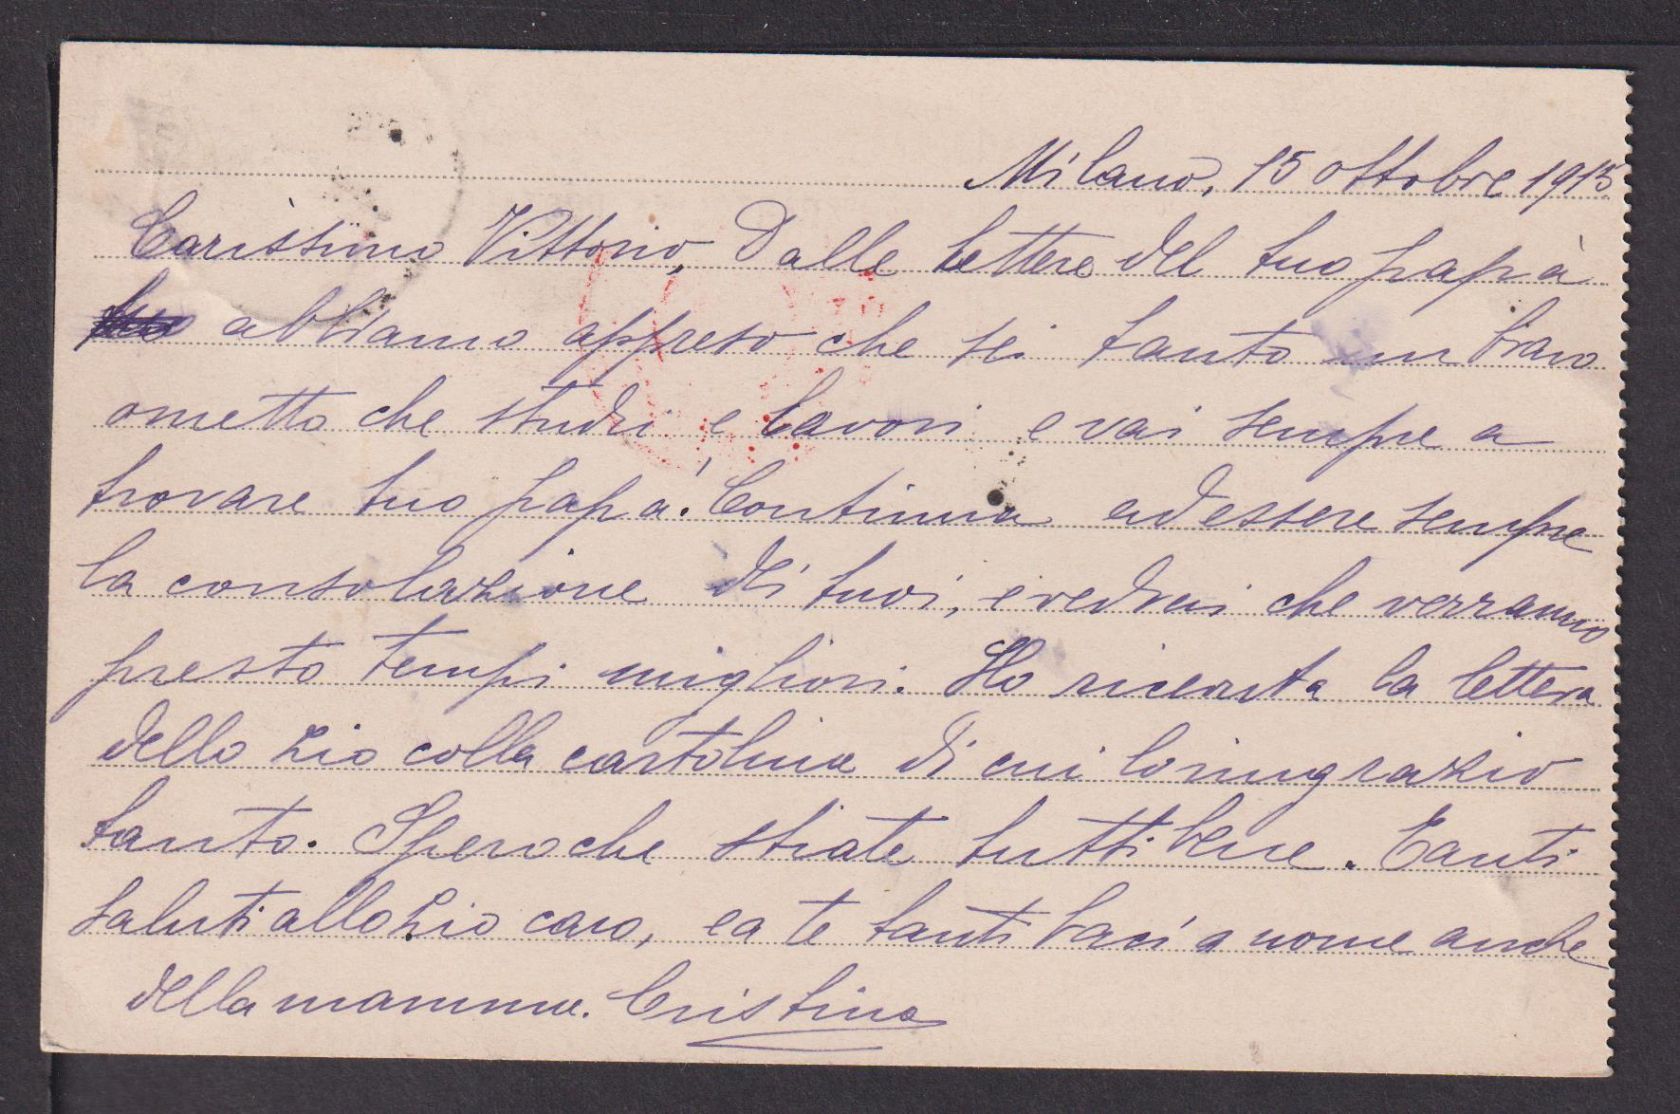 Milano, 15 ottobre 1915
Carissimo Vittorio, Dalle lettere del tuo papà
abbiamo appreso che sei tanto un bravo
ometto che studi e lavori e vai sempre a
trovare tuo papà. Continua ad essere sempre
la consolazione dei tuoi, e vedrai che verranno
presto tempi migliori. Ho ricevuta la lettera
dello zio colla cartolina di cui lo ringrazio
tanto. Spero che stiate tutti bene. Tanti
saluti allo zio caro, e a te tanti baci a nome anche
della mamma. Cristina